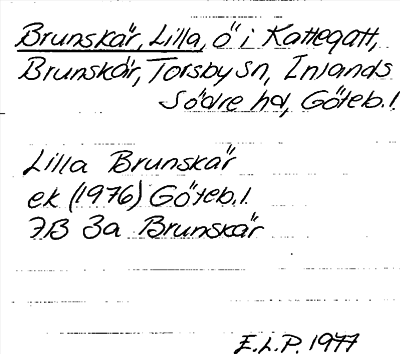 Brunskär, Lilla, ö i Kattegatt,
Brunskär, Torsby sn, Inlands
Södre hd, Göteb.l.
Lilla Brunskär
ek (1976) Göteb.l.
7B 3a Brunskär
E.L.P. 1977